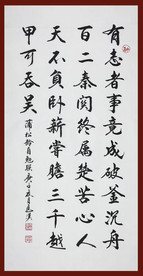 有志者事竟成破釜沉舟
百二秦関終属楚苦心人
天不負卧薪嘗膽三千越
甲可吞吴
蒲松龄自勉联